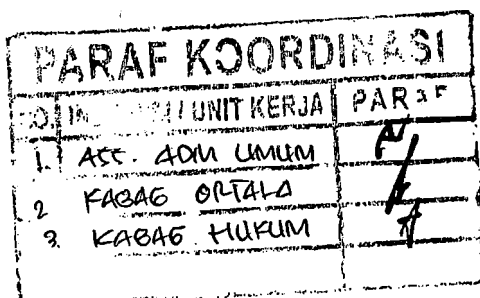 PARAF KOORDINASI
NO. / UNIT KERJA PARAF
1. ASS. ADM UMUM
2 KABAG ORTALA
3. KABAG HUKUM